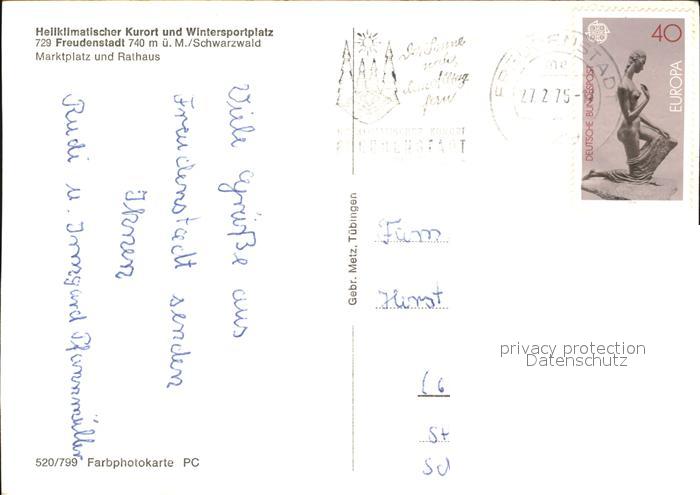 Heilklimatischer Kurort und Wintersportplatz
729 Freudenstadt 740 m ü. M./Schwarzwald
Marktplatz und Rathaus
Viele Grüße aus
Freudenstadt senden
Ihnen
Rudi u. Irmgard Pfannmüller
520/799 Farbphotokarte PC
Gebr. Metz, Tübingen
Der Sonne
dem Alltag
fern
HEILKLIMATISCHER KURORT
FREUDENSTADT
FREUDENSTADT
27.2.75
40
DEUTSCHE BUNDESPOST
EUROPA
Firm
Horst
St
privacy protection
Datenschutz